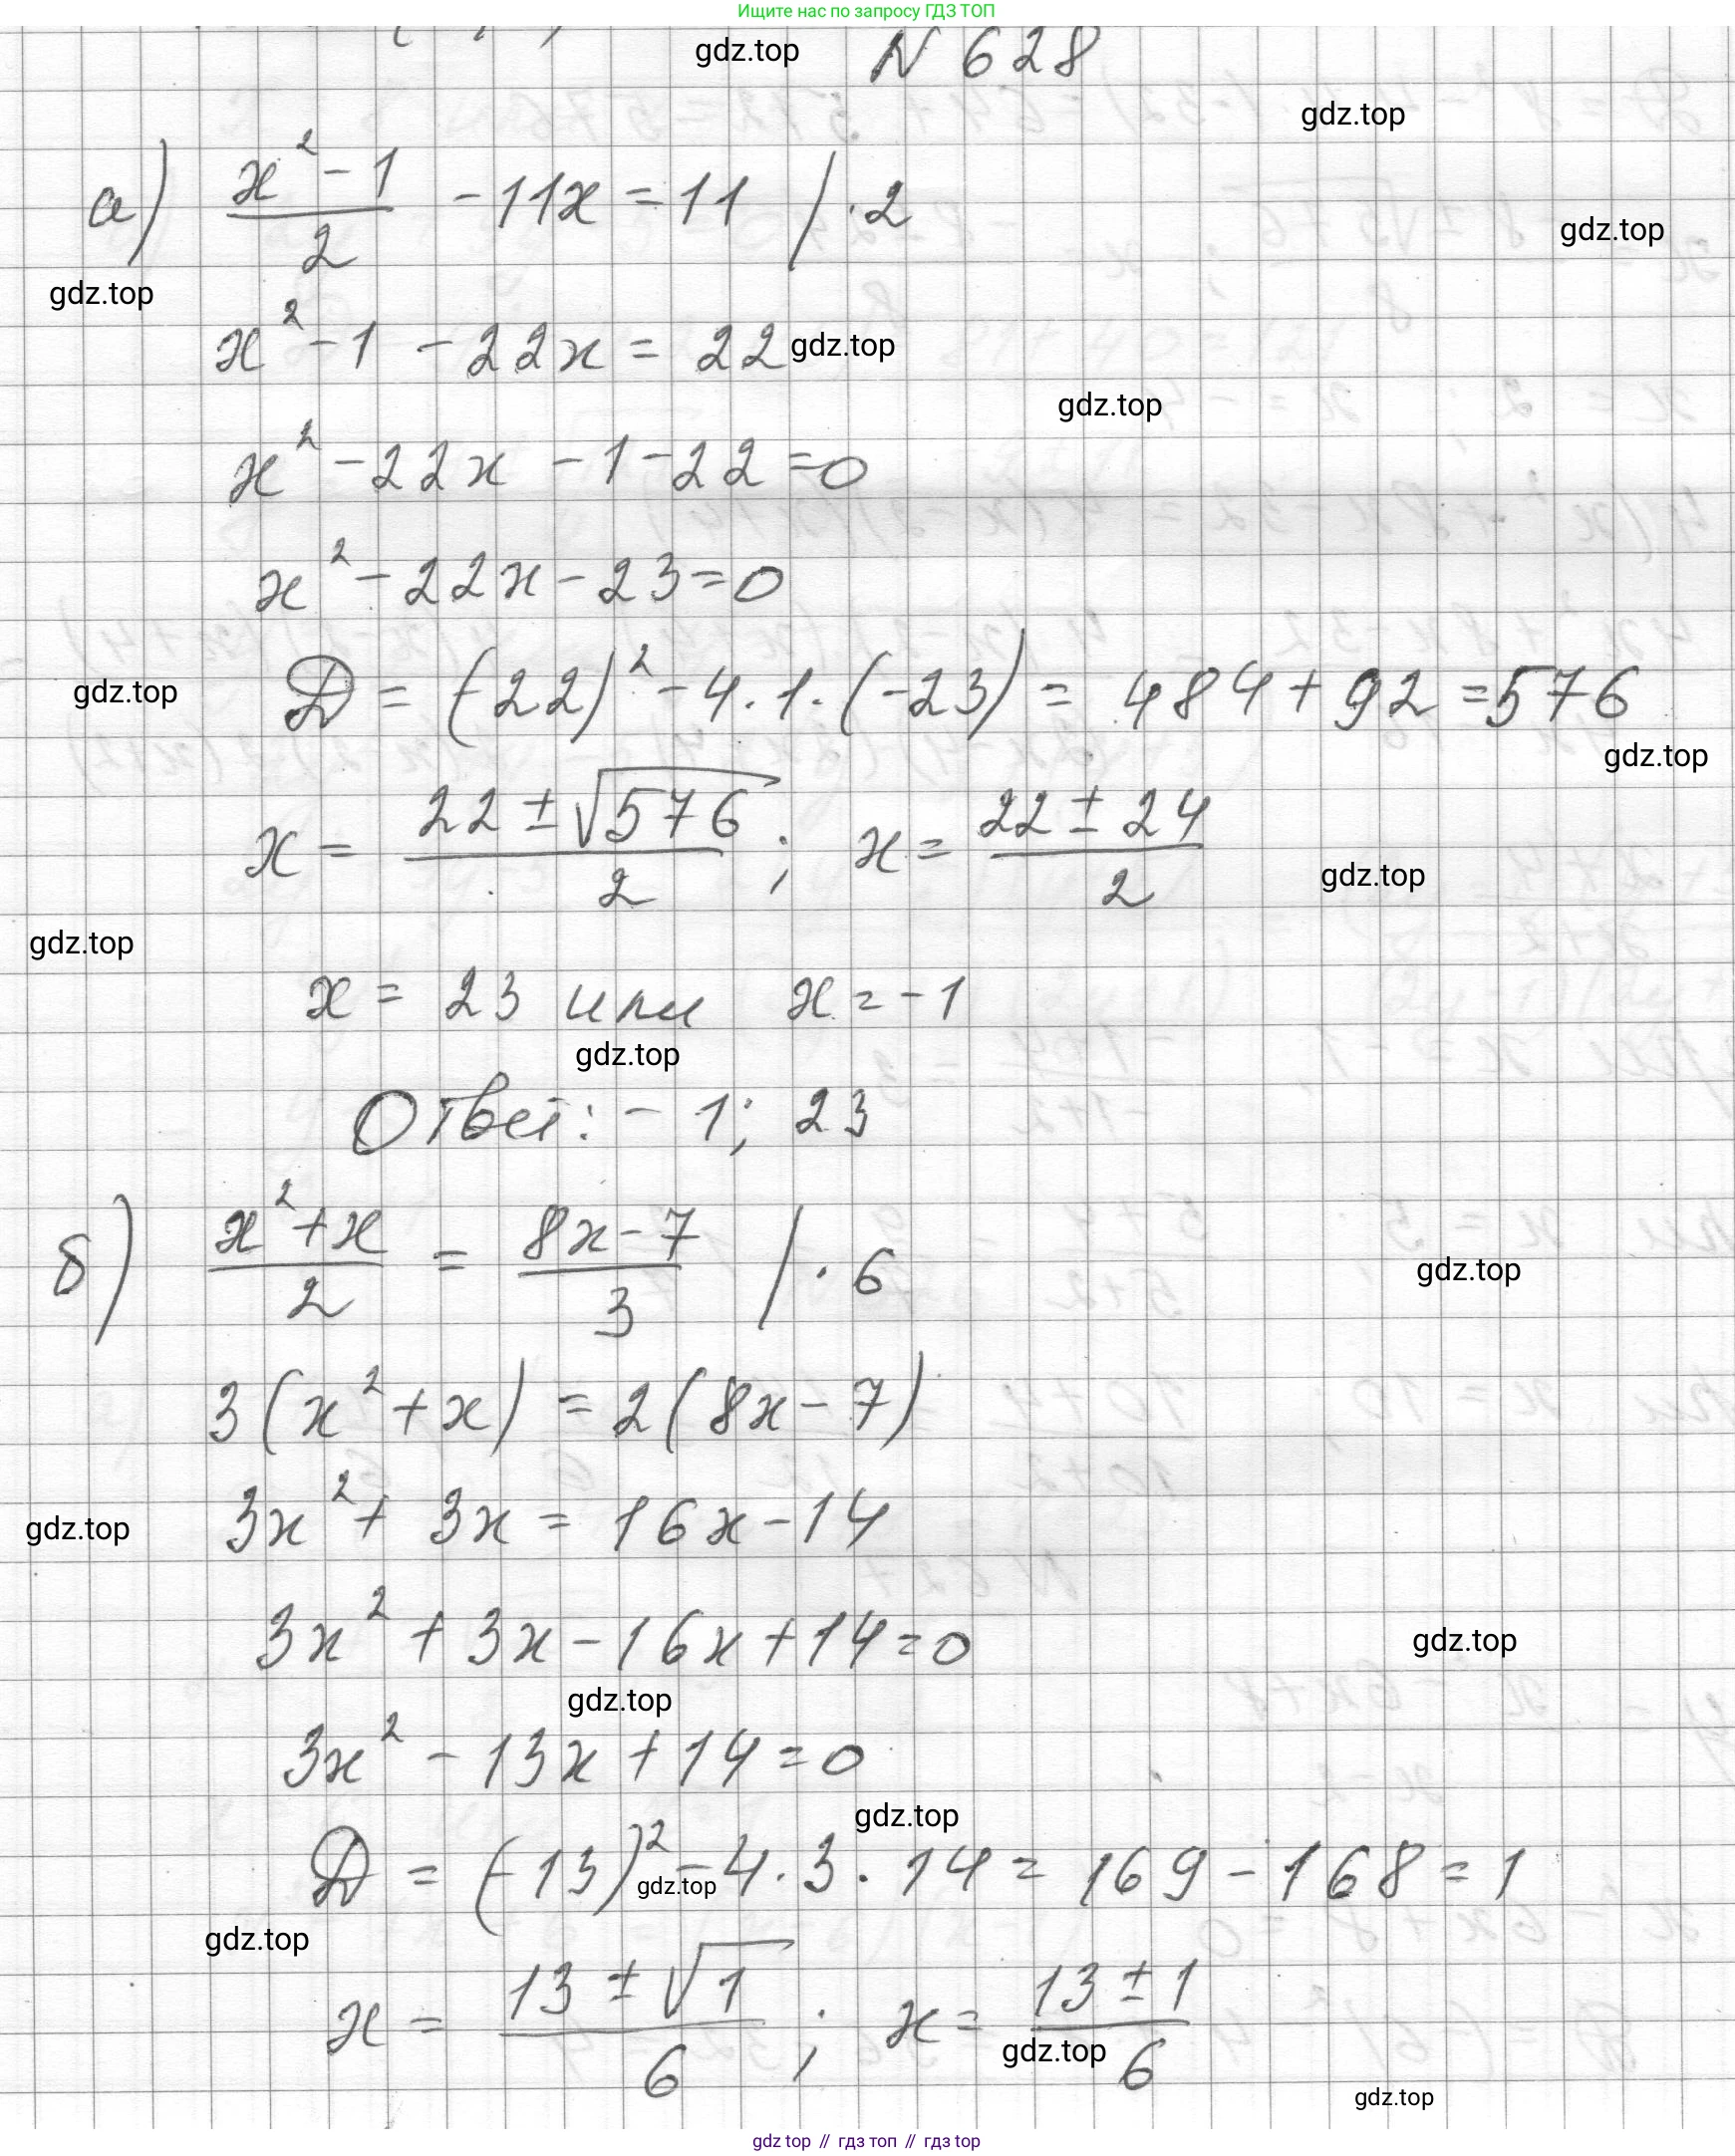 Ищите нас по запросу ГДЗ ТОП
gdz.top
N 628
gdz.top
а) (x² - 1)/2 - 11x = 11 / · 2
gdz.top
gdz.top
x² - 1 - 22x = 22
gdz.top
gdz.top
x² - 22x - 1 - 22 = 0
x² - 22x - 23 = 0
gdz.top
D = (-22)² - 4 · 1 · (-23) = 484 + 92 = 576
gdz.top
x = (22 ± √576)/2 ; x = (22 ± 24)/2
gdz.top
gdz.top
x = 23 или x = -1
gdz.top
Ответ: - 1; 23
б) (x² + x)/2 = (8x - 7)/3 / · 6
gdz.top
3(x² + x) = 2(8x - 7)
gdz.top
3x² + 3x = 16x - 14
3x² + 3x - 16x + 14 = 0
gdz.top
gdz.top
3x² - 13x + 14 = 0
gdz.top
D = (-13)² - 4 · 3 · 14 = 169 - 168 = 1
gdz.top
gdz.top
x = (13 ± √1)/6 ; x = (13 ± 1)/6
gdz.top
gdz.top
gdz top // гдз топ // гдз top